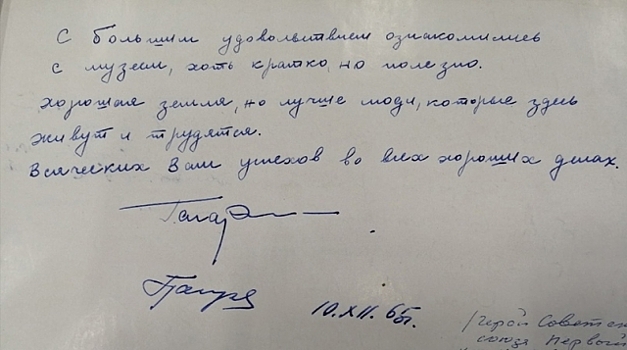 С большим удовольствием ознакомились
с музеем, хоть кратко, но полезно.
Хорошая земля, но лучше люди, которые здесь
живут и трудятся.
Всяческих Вам успехов во всех хороших делах.
10.XII.65г.
Герой Советск
союза первый